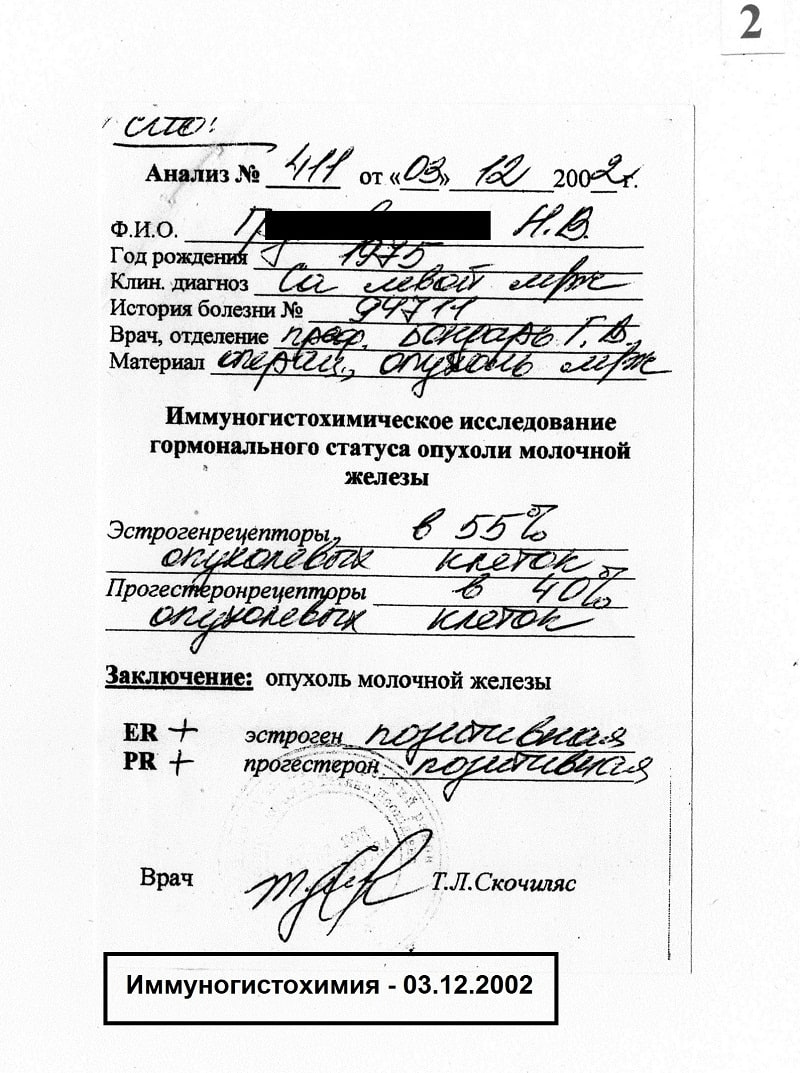 2
cito!
Анализ № 411 от «03» 12 2002 г.
Ф.И.О. П Н.В.
Год рождения 1975
Клин. диагноз Ca левой мрж
История болезни № 94711
Врач, отделение проф. Бондарь Г.В.
Материал операц., опухоль мрж
Иммуногистохимическое исследование
гормонального статуса опухоли молочной
железы
Эстрогенрецепторы в 55%
опухолевых клеток
Прогестеронрецепторы в 40%
опухолевых клеток
Заключение: опухоль молочной железы
ER + эстроген позитивная
PR + прогестерон позитивная
Врач Т.Л.Скочиляс
Иммуногистохимия - 03.12.2002